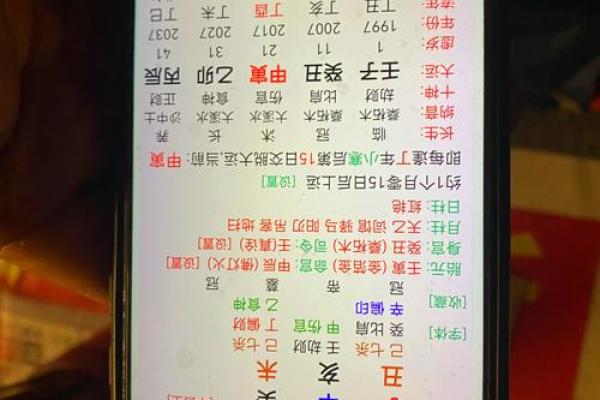 丑 亥 未
己七杀 壬劫财 己七杀
[字体] 癸比肩 甲伤官 丁偏财
[收藏] 辛偏印 乙食神
冠 帝 墓 冠
胎元: 壬寅 (金箔金) 命宫: 甲辰 (佛灯火) [设置]
身宫: 癸丑 (桑柘木) 司令: 壬(真诠) [设置]
月柱: 天乙 词馆 驿马 阳刃 吊客 地扫
日柱: 红艳
约1个月零15日后上运 [设置]
即每逢丁年小寒后第15日交脱大运,当前: 甲寅
长生: 临 冠 沐 长 养
纳音: 桑柘木 桑柘木 大溪水 大溪水 沙中土
十神: 劫财 比肩 伤官 食神 正财
大运: 壬子 癸丑 甲寅 乙卯 丙辰
虚岁: 1 11 21 31 41
年份: 1997 2007 2017 2027 2037
流年: 丁丑 丁亥 丁酉 丁未 丁巳